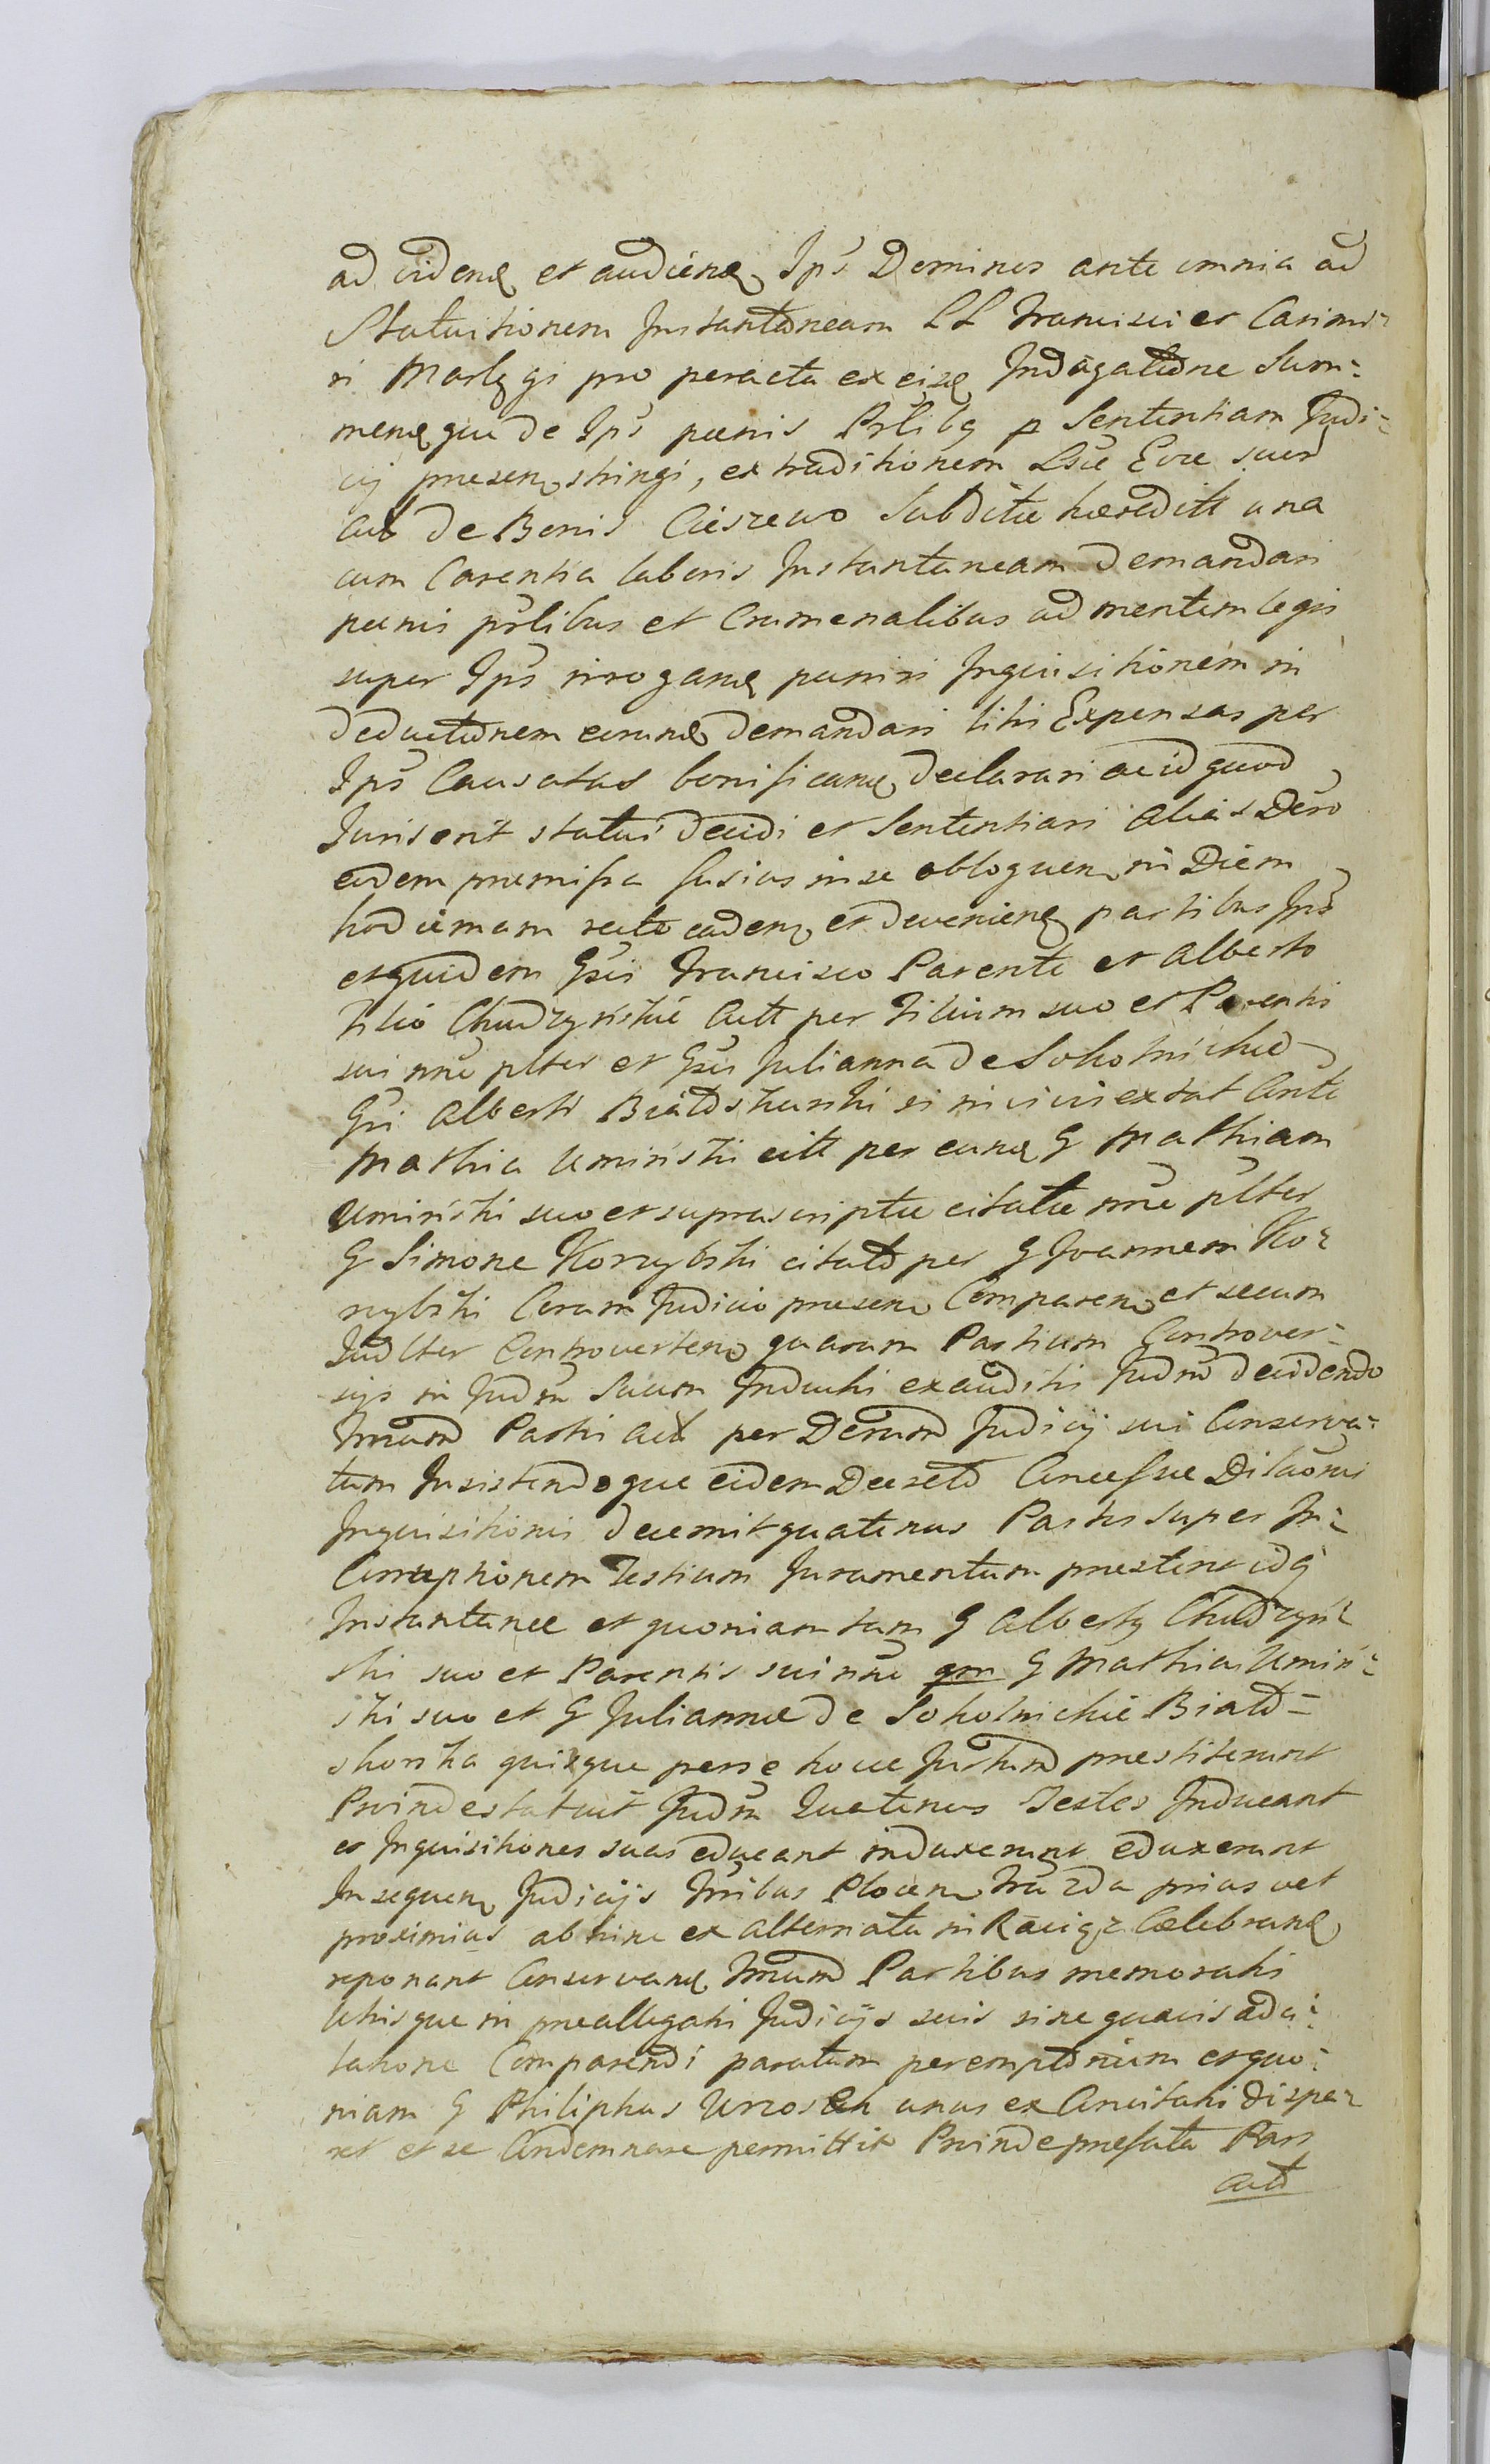 ad viden et audien Ips Dominos ante omnia ad
Statuitionem Instantaneam LL Francisci et Casimi-
ri pro peracta ex eis Indagatione Sum-
menq que de Ips pœnis Prlibq p Sententiam Judi-
cij presen stringi, extraditionem Lsæ Evæ
de Bonis Cieszewo Subditæ hæreditt una
cum Carentia laboris Instantaneam demandari
pœnis prlibus et Crumenalibus ad mentem legis
super Ips irrogan puniri Inquisitionem in
deductionem eorund demandari liti Expensas per
Ips Causatas bonifican declarari ac id quod
Juris erit statui decidi et Sententiari alias Dero
eidem præmissa fusius in se obloquen in Diem
hodiernam recte caden et devenien partibus Ips
et quidem Gsis Francisco Parente et Alberto
Filio Chudzyńskie Citt per Filium suo et Parentis
sui nne plter et Gsis Julianna de Sokolnickie
Gsi Alberti Białoskurski si in vivis extat Conte
Mathia Umiński citt per eund G Mathiam
Umiński suo et suprascriptæ citatæ nne plter
G Simone Korzybski citato per G Joannem Ko-
rzybski Coram Judicio presen Comparen et secum
Judlter Controverten quarum Partium Controver-
sijs in Judm Suum Inducti exauditis Judm decidendo
Trnum Parti act per Derum Judicij sui Conserva-
tum Insistendoque eidem Decreto Concessæ Dilaonis
Inquisitionis decernit quatenus Partes super In-
Corruptionem Testium Juramentum prestent idq
Instantanee et quoniam tam G Albertq Chudzyń-
ski suo et Parentis sui nne qm G Mathias Umiń-
ski suo et G Juliannæ de Sokolnickie Biało-
skorska quisque per se hocce Jurtum prestiterunt
Proinde statuit Judm Quatenus Testes Inducant
et Inquisitiones suas educant induxerunt eduxerunt
In sequen Judicijs Trribus Plocen Fra 2da prius vel
proximius ab hinc ex alternata in Raciąż Celebran
reponant Conservan Trnum Partibus memoratis
Utrisque in preallegatis Judicijs suis sine quavis adci-
tatione Comparendi paratum peremptorium et quo-
niam G Philiphus unus ex Concitatis dispa-
ret et se Condemnare permittit Proinde prefata Pars
act